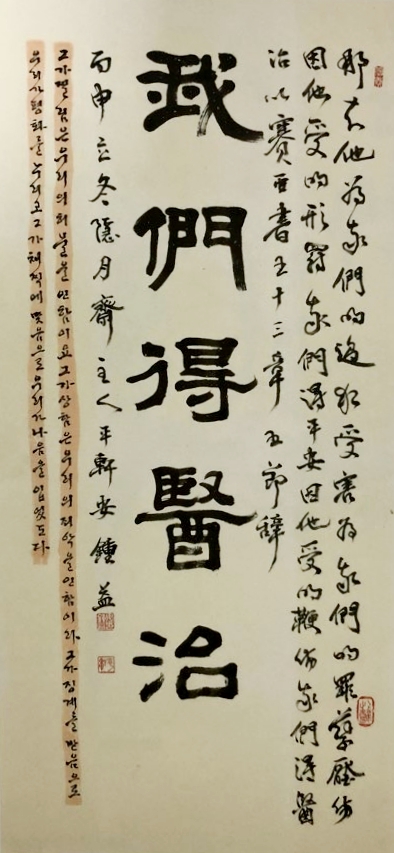 那知他為我們的過犯受害為我們的罪孽壓傷
因他受的刑罰我們得平安因他受的鞭傷我們得醫
治以賽亞書五十三章五節辭
我們得醫治
丙申立冬隱月齋主人平軒安鍾益
그가찔림은우리의허물을인함이요그가상함은우리의죄악을인함이라그가징계를받음으로
우리가평화를누리고그가채찍에맞음으로우리가나음을입엇도다